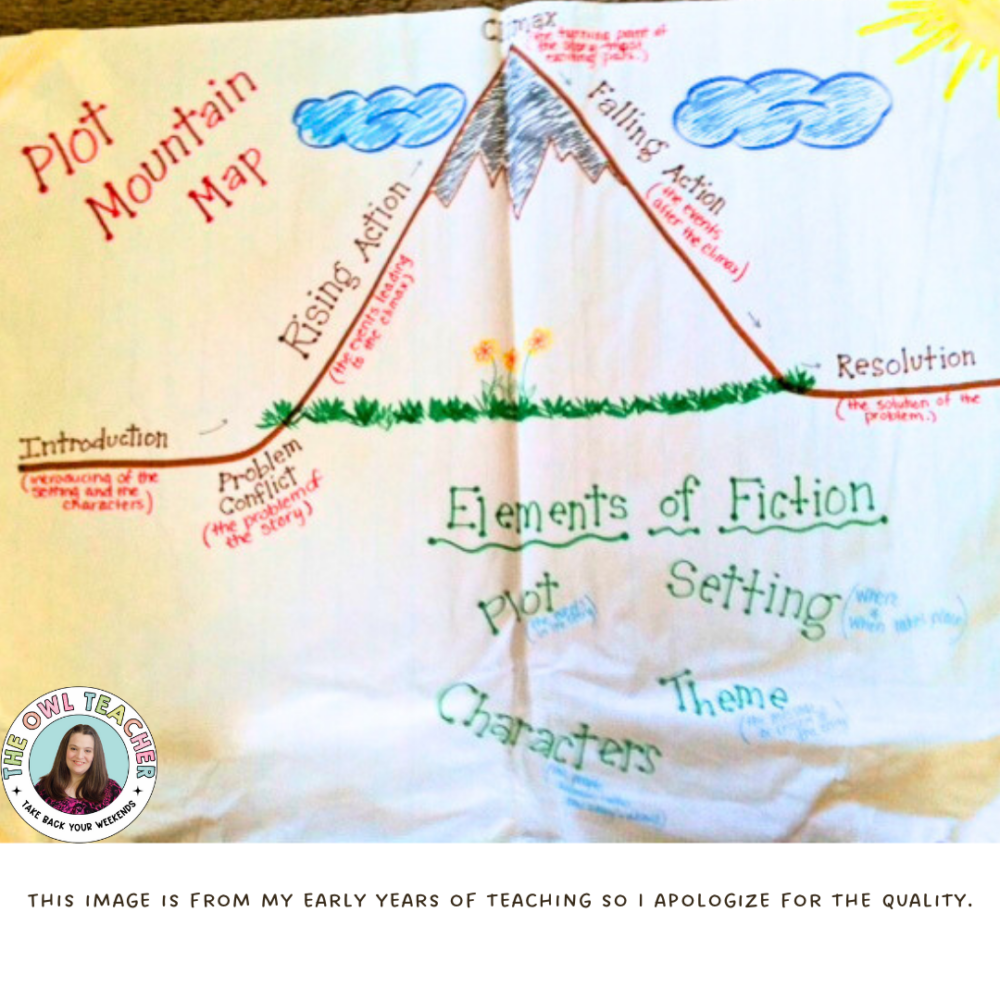 Plot
Mountain
Map
Climax
(the turning point of
the story-most
exciting part.)
Rising Action
(the events leading
to the climax)
Falling Action
(the events
after the climax)
Introduction
(introducing of the
setting and the
characters)
Problem
Conflict
(the problem of
the story)
Resolution
(the solution of the
problem.)
Elements of Fiction
Plot
Setting
(where
&
when takes place)
Characters
Theme
THE OWL TEACHER
TAKE BACK YOUR WEEKENDS
THIS IMAGE IS FROM MY EARLY YEARS OF TEACHING SO I APOLOGIZE FOR THE QUALITY.